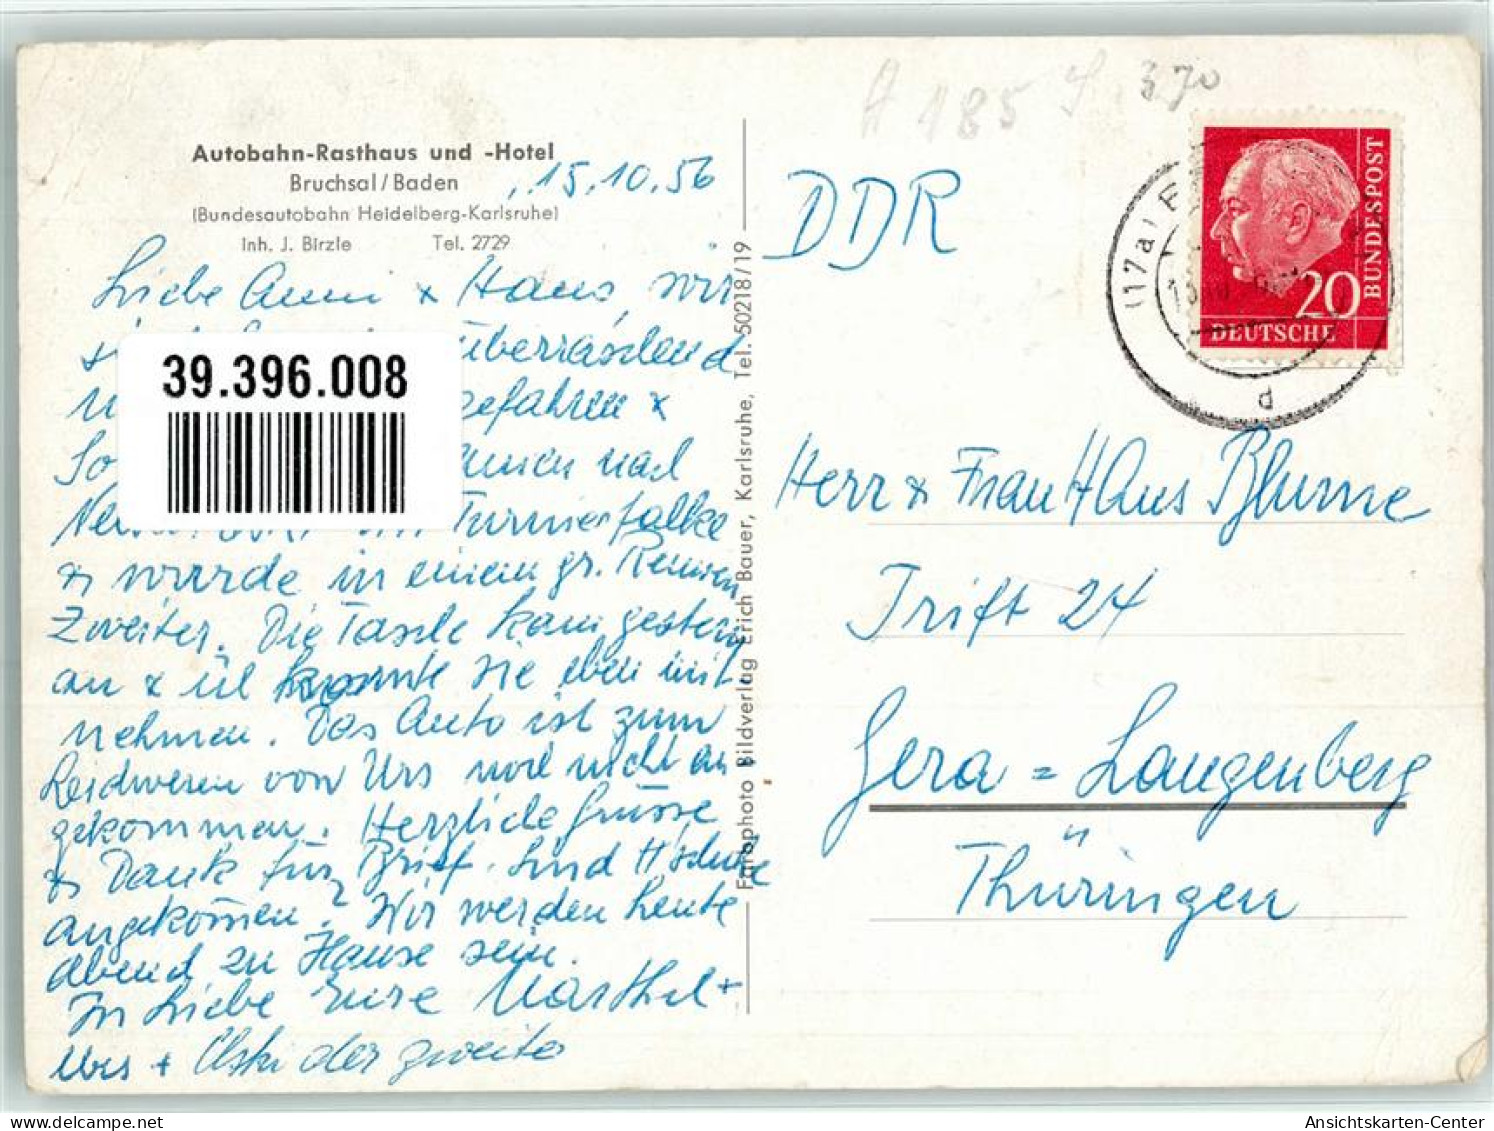 A 185 370
Autobahn-Rasthaus und -Hotel
Bruchsal/Baden
15.10.56
(Bundesautobahn Heidelberg-Karlsruhe)
Inh. J. Birzle Tel. 2729
Liebe Anni + Hans, wir
überraschend
gefahren +
39.396.008
So nach
Turnierfalke
+ wurde in einem gr. Rennen
Zweiter. Die Tasche kam gestern
an + ich konnte sie eben mit
nehmen. Das Auto ist zum
Leidwesen von Urs noch nicht an
gekommen. Herzliche Grüsse
+ Dank für Brief. Sind
angekommen? Wir werden heute
abend zu Hause sein.
In Liebe Eure +
Urs + der zweite
Farbphoto Bildverlag Erich Bauer, Karlsruhe, Tel. 50218/19
DDR
(17a)
d
DEUTSCHE
BUNDESPOST
20
Herr + Frau Hans Blume
Trift 24
Gera = Langenberg
Thüringen
Ansichtskarten-Center
delcampe.net